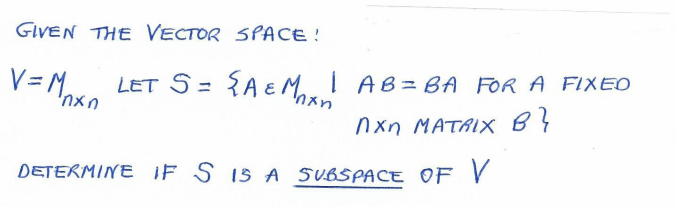 GIVEN THE VECTOR SPACE!
V=Mₙₓₙ LET S = {A ε Mₙₓₙ | AB = BA FOR A FIXED
nxn MATRIX B}
DETERMINE IF S IS A SUBSPACE OF V